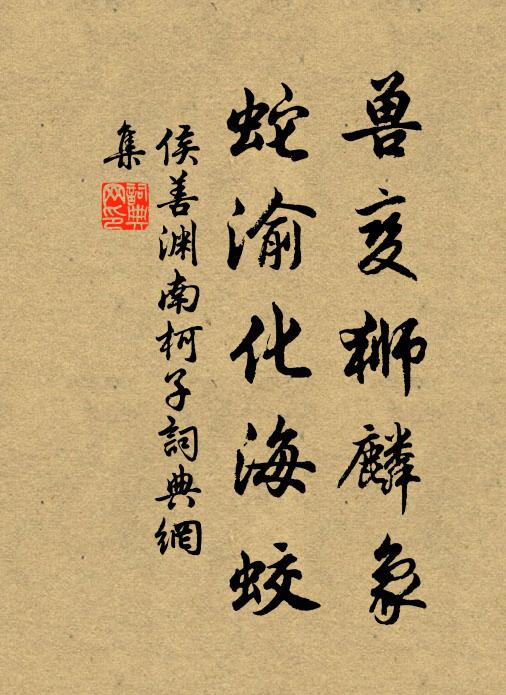 兽变狮麟象
蛇渝化海蛟
侯善渊南柯子詞典網
集
詞典
网印